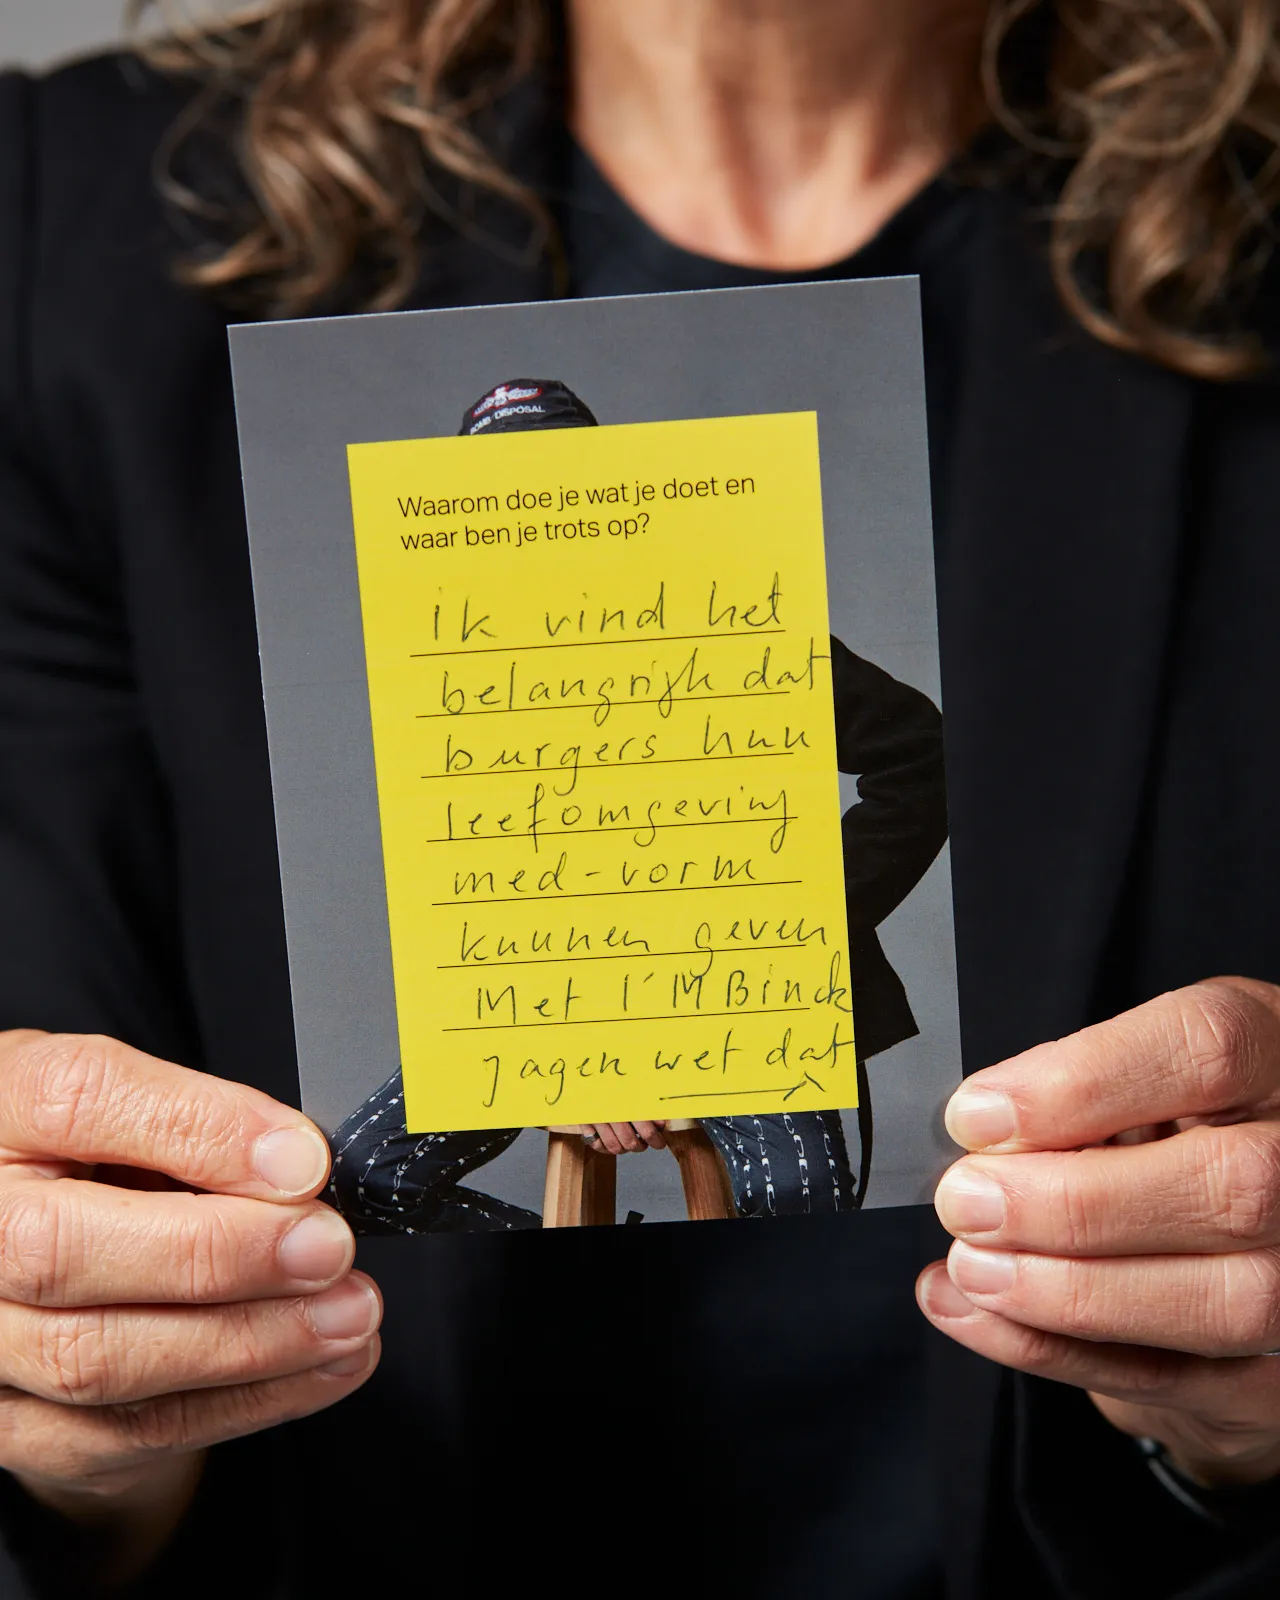 BOMB DISPOSAL
Waarom doe je wat je doet en
waar ben je trots op?
ik vind het
belangrijk dat
burgers hun
leefomgeving
med-vorm
kunnen geven
Met I'M Binck
jagen wet dat